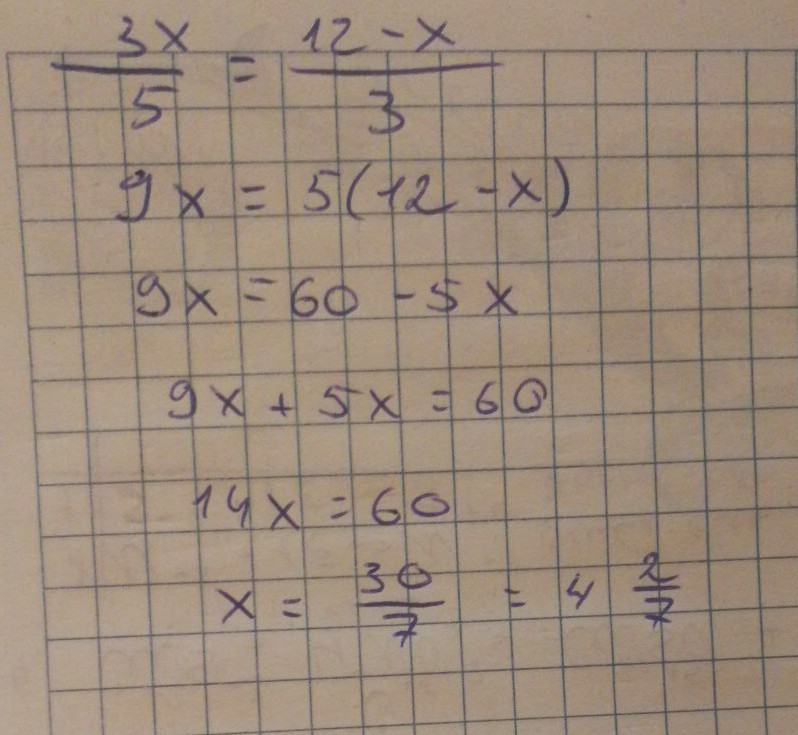 3x/5 = 12-x/3
9x = 5(12-x)
9x = 60 - 5x
9x + 5x = 60
14x = 60
x = 30/7 = 4 2/7